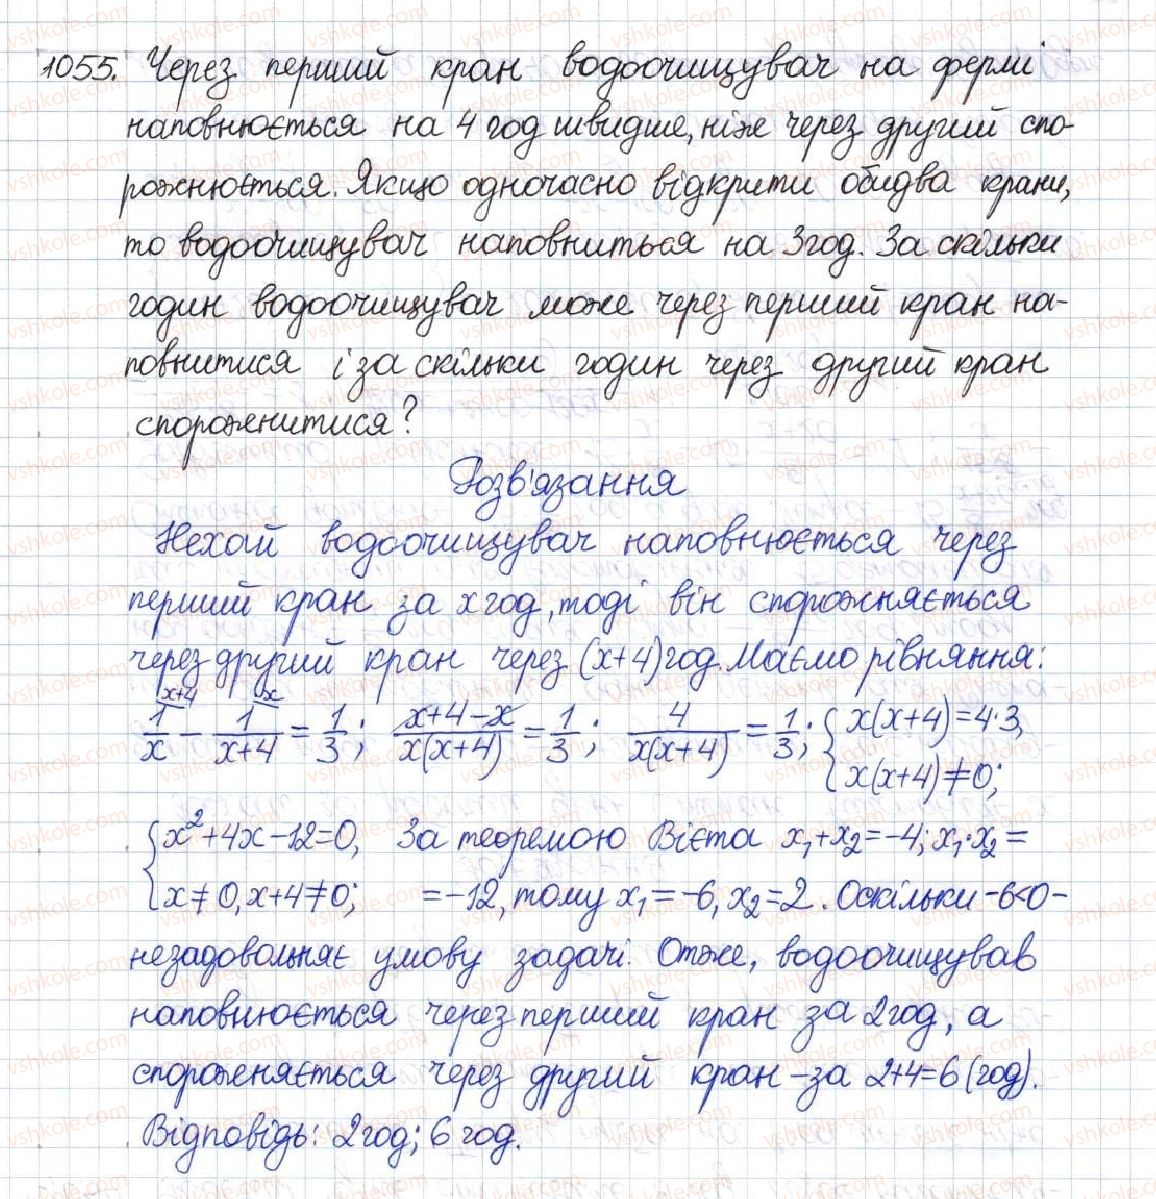 1055. Через перший кран водоочищувач на фермі
наповнюється на 4 год швидше, ніж через другий спо-
рожнюється. Якщо одночасно відкрити обидва крани,
то водоочищувач наповниться на 3 год. За скільки
годин водоочищувач може через перший кран на-
повнитися і за скільки годин через другий кран
спороженитися?
Розв'язання
Нехай водоочищувач наповнюється через
перший кран за x год, тоді він спорожняється
через другий кран через (x+4) год. Маємо рівняння:
1/x (x+4) - 1/(x+4) (x) = 1/3; (x+4-x)/(x(x+4)) = 1/3; 4/(x(x+4)) = 1/3; { x(x+4)=4·3,
x(x+4)≠0;
{ x²+4x-12=0, За теоремою Вієта x₁+x₂=-4; x₁·x₂=
x≠0, x+4≠0; =-12, тому x₁=-6, x₂=2. Оскільки -6<0-
незадовольняє умову задачі. Отже, водоочищував
наповнюється через перший кран за 2 год, а
спороженяється через другий кран -за 2+4=6 (год).
Відповідь: 2 год; 6 год.